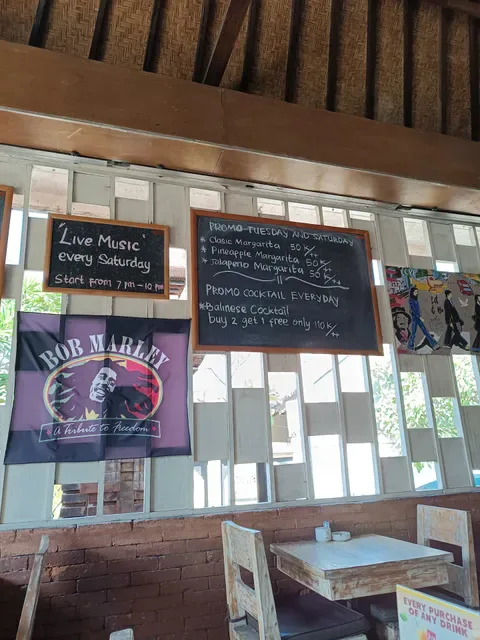 "Live Music"
every Saturday
Start from 7 pm – 10 pm
PROMO TUESDAY AND SATURDAY
* Clasic Margarita 50 K/++
* Pineapple Margarita 50 K/++
* Jalapeno Margarita 50 K/++
PROMO COCKTAIL EVERYDAY
* Balinese Cocktail
buy 2 get 1 free only 110 K/++
BOB MARLEY
A Tribute to Freedom
EVERY PURCHASE
OF ANY DRINK